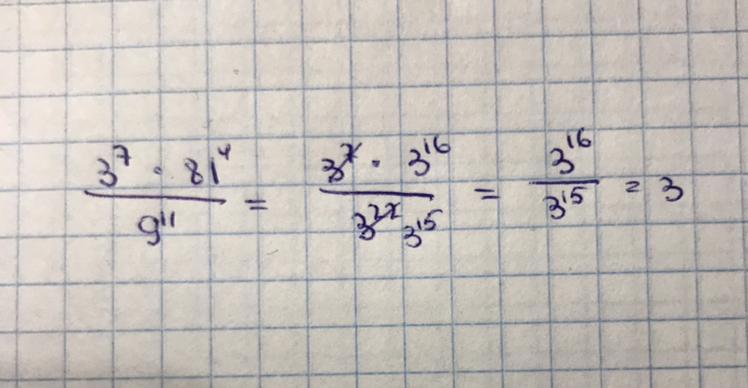 3⁷ · 81⁴ / 9¹¹ = 3⁷ · 3¹⁶ / 3²² 3¹⁵ = 3¹⁶ / 3¹⁵ = 3